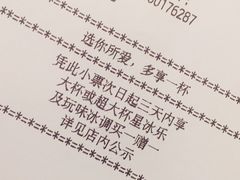 00176287
*=*=*=*=*=*=*=*=*=*=*=*=*=*
选你所爱，多享一杯
凭此小票次日起三天内享
大杯或超大杯星冰乐
及玩味冰调买一赠一
详见店内公示
*=*=*=*=*=*=*=*=*=*=*=*=*=*